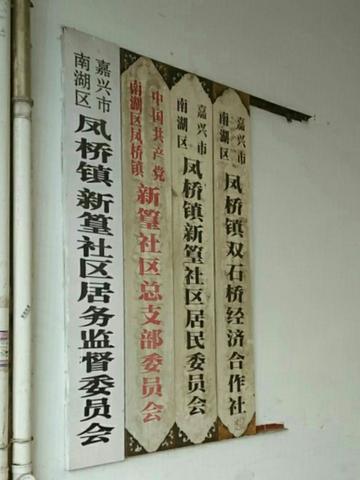 嘉兴市
南湖区
凤桥镇双石桥经济合作社
嘉兴市
南湖区
凤桥镇新篁社区居民委员会
中国共产党
南湖区凤桥镇
新篁社区总支部委员会
嘉兴市
南湖区
凤桥镇新篁社区居务监督委员会